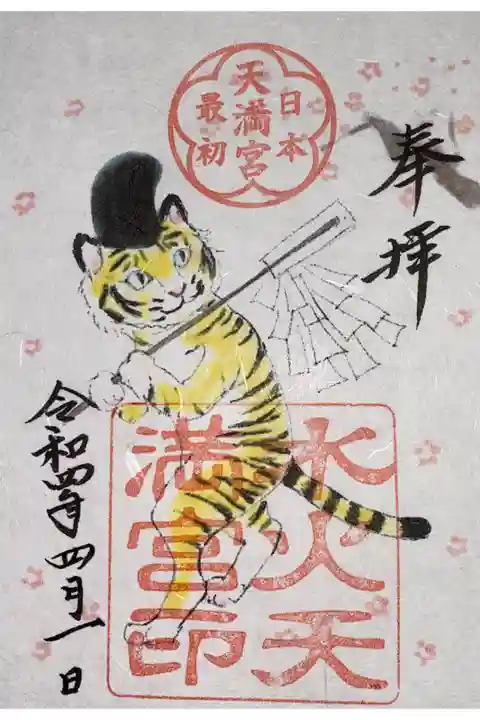 奉拝
日本
天満宮
最初
水火天
満宮印
令和四年四月一日